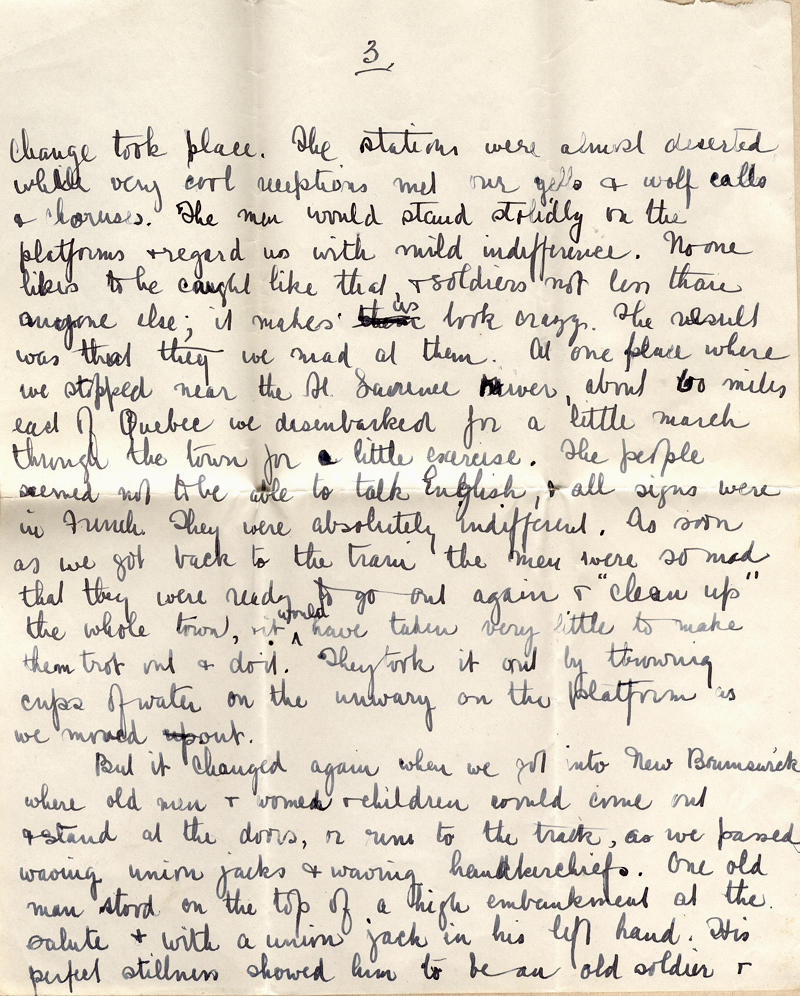 3.
change took place. The stations were almost deserted
while very cool receptions met our yells & wolf calls
& choruses. The men would stand stolidly on the
platforms & regard us with mild indifference. No one
likes to be caught like that, & soldiers not less than
anyone else; it makes us look crazy. The result
was that they we mad at them. At one place where
we stopped near the St Lawrence River, about 60 miles
east of Quebec we disembarked for a little march
through the town for a little exercise. The people
seemed not to be able to talk English, & all signs were
in French. They were absolutely indifferent. As soon
as we got back to the train the men were so mad
that they were ready to go out again & "clean up"
the whole town, & it would have taken very little to make
them trot out & do it. They took it out by throwing
cups of water on the unwary on the platform as
we moved up out.
But it changed again when we got into New Brunswick
where old men & women & children would come out
& stand at the doors, or run to the track, as we passed
waving union jacks & waving handkerchiefs. One old
man stood on the top of a high embankment at the
salute & with a union jack in his left hand. His
perfect stillness showed him to be an old soldier &